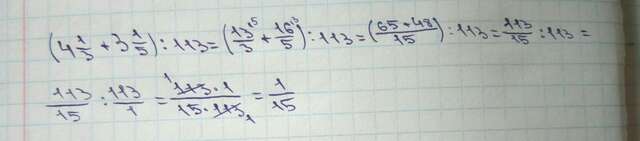 (4 1/3 + 3 1/5) : 113 = (13⁵/3 + 16³/5) : 113 = (65+48/15) : 113 = 113/15 : 113 =
113/15 : 113/1 = ¹113·1/15·113₁ = 1/15